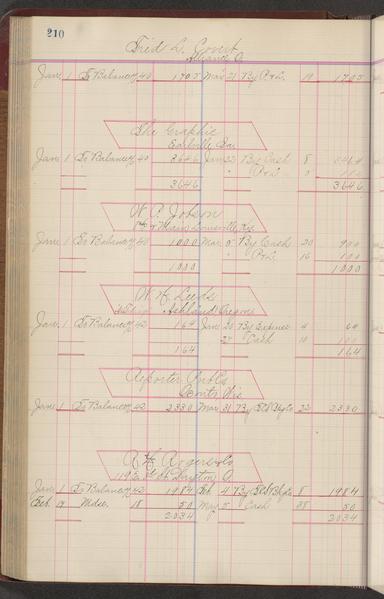 210
Fred L. Covert
Alliance O.
Jany 1 To Balance 40 1705 Mar 21 By P & L. 19 1705
The Graphic
Earlville
Jany 1 To Balance 40 3646 Jany 22 By Cash 8
" P & L
3646 3646
W. P. Jobson
Main Louisville Ky.
Jany 1 To Balance 40 1000 Mar 5 By Cash 20 900
" P & L 16 100
1000 1000
W. H. Leeds
Ashland Oregon
Jany 1 To Balance 42 164 Jany 20 By Expense 4 64
27 Cash 10 100
164 164
Reporter Pub Co
Wis
Jany 1 To Balance 42 2330 Mar 31 By 22 2330
A. H. Rogers Co
Dayton O.
Jany 1 To Balance 42 1984 Feb 4 By 8 1984
Feb. 19 Mdse. 18 50 May 5 Cash 38 50
2034 2034